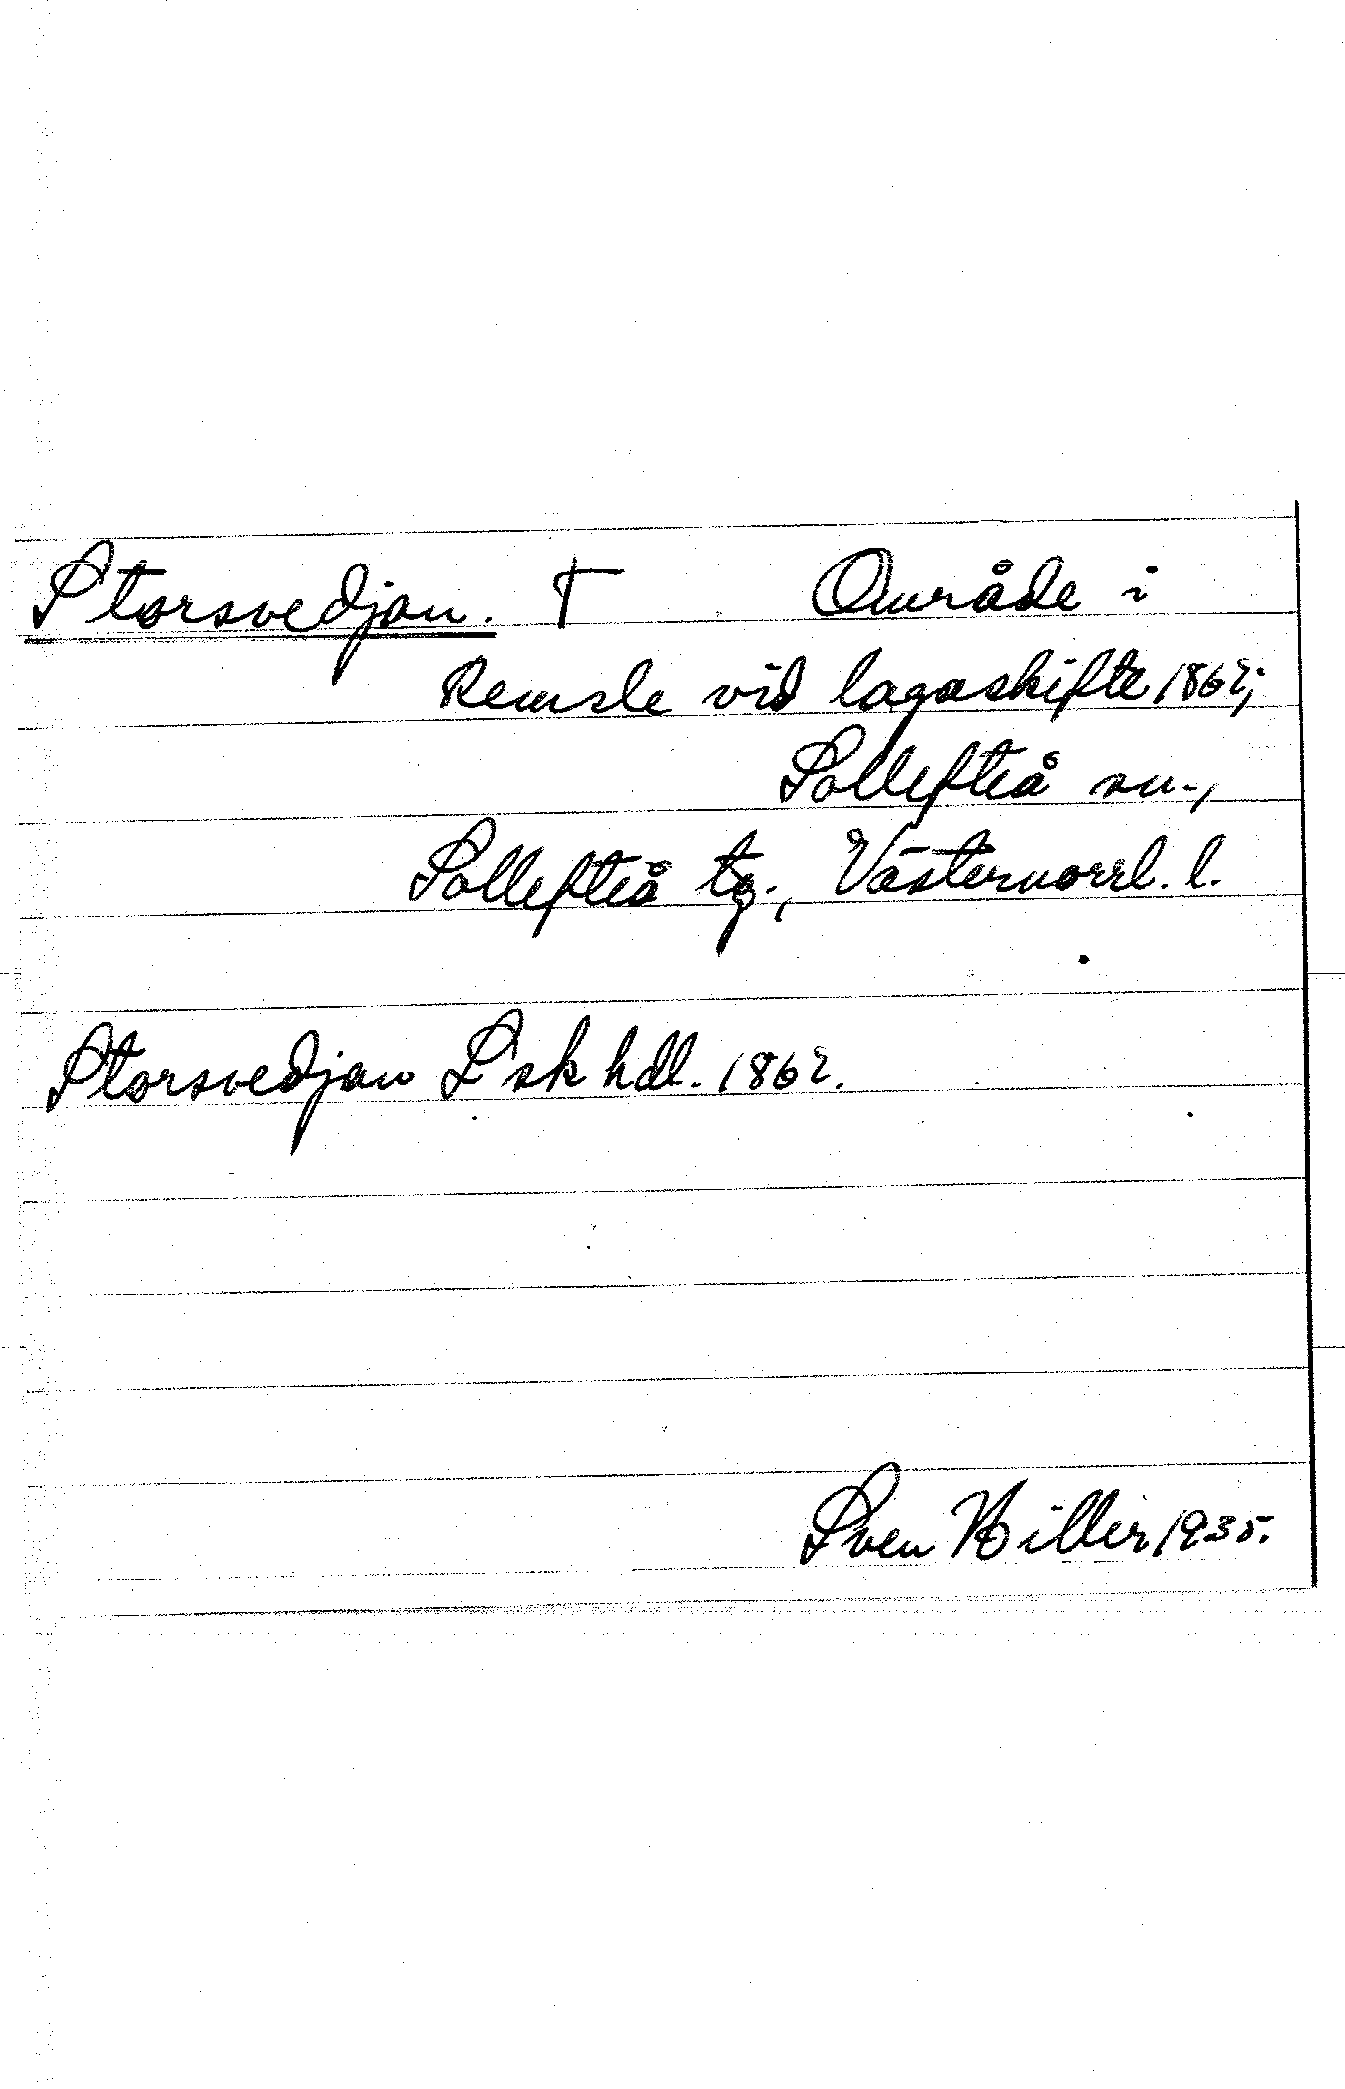 Storsvedjan. † Område i
Remsle vid lagaskifte 1862;
Sollefteå sn.,
Sollefteå tg., Västernorrl. l.
Storsvedjan L sk hdl. 1862.
Sven Hillir 1935.